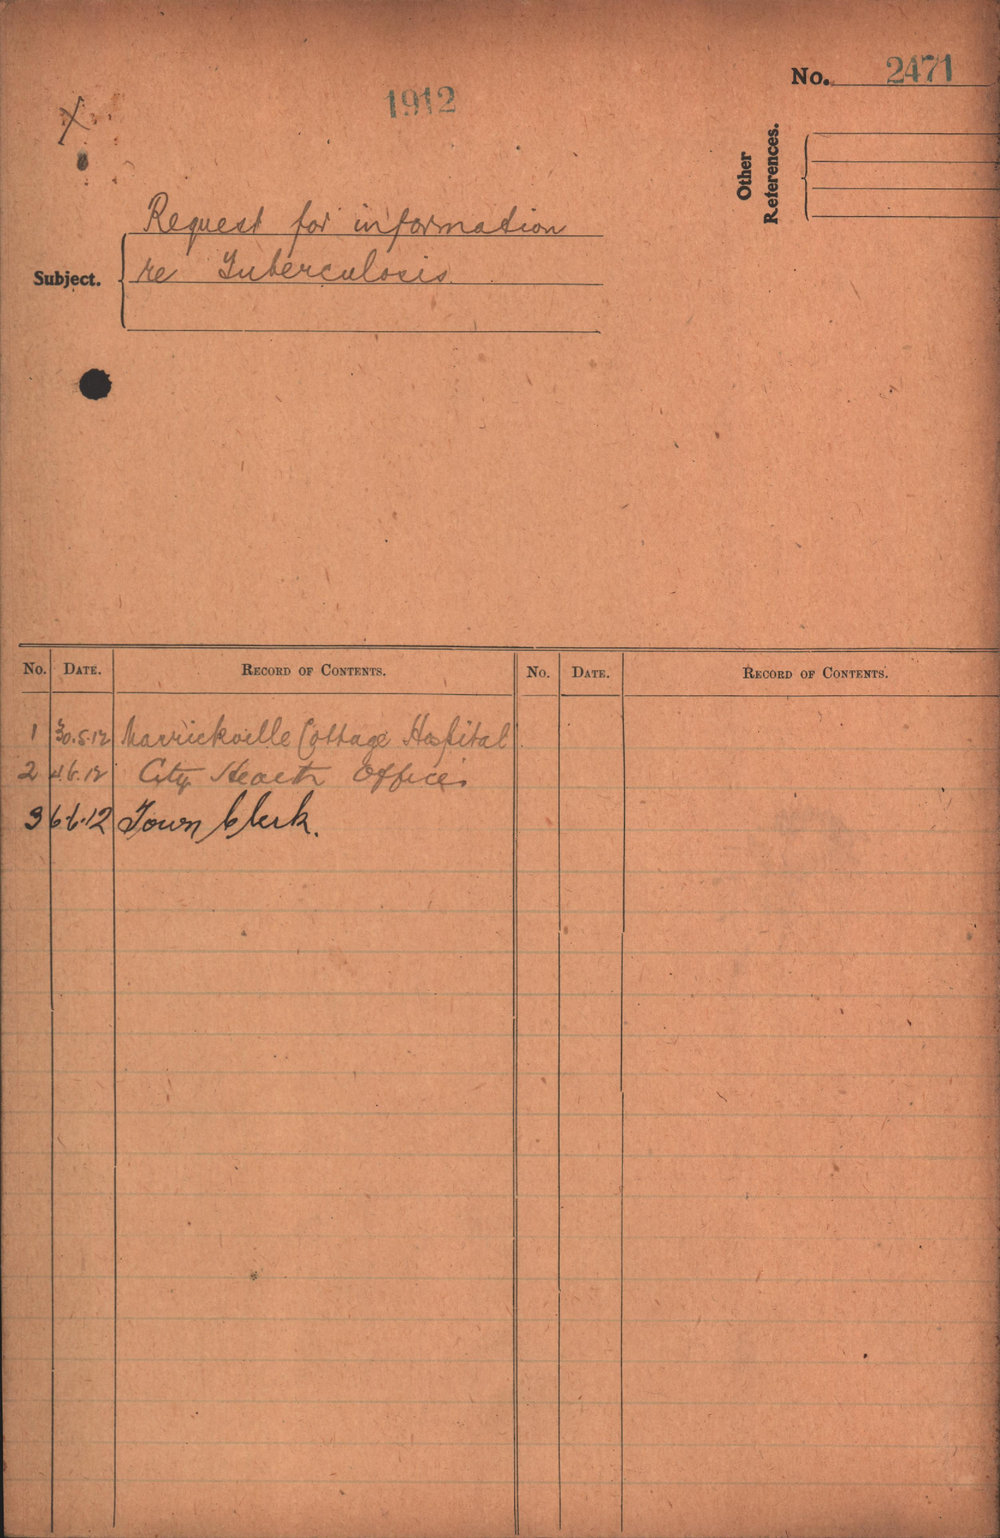 No. 2471
1912
X
Other
References.
Request for information
Subject. re Tuberculosis
No. DATE. RECORD OF CONTENTS. No. DATE. RECORD OF CONTENTS.
1 30.5.12 Marrickville Cottage Hospital
2 4.6.12 City Health Officer
3 6.6.12 Town Clerk.